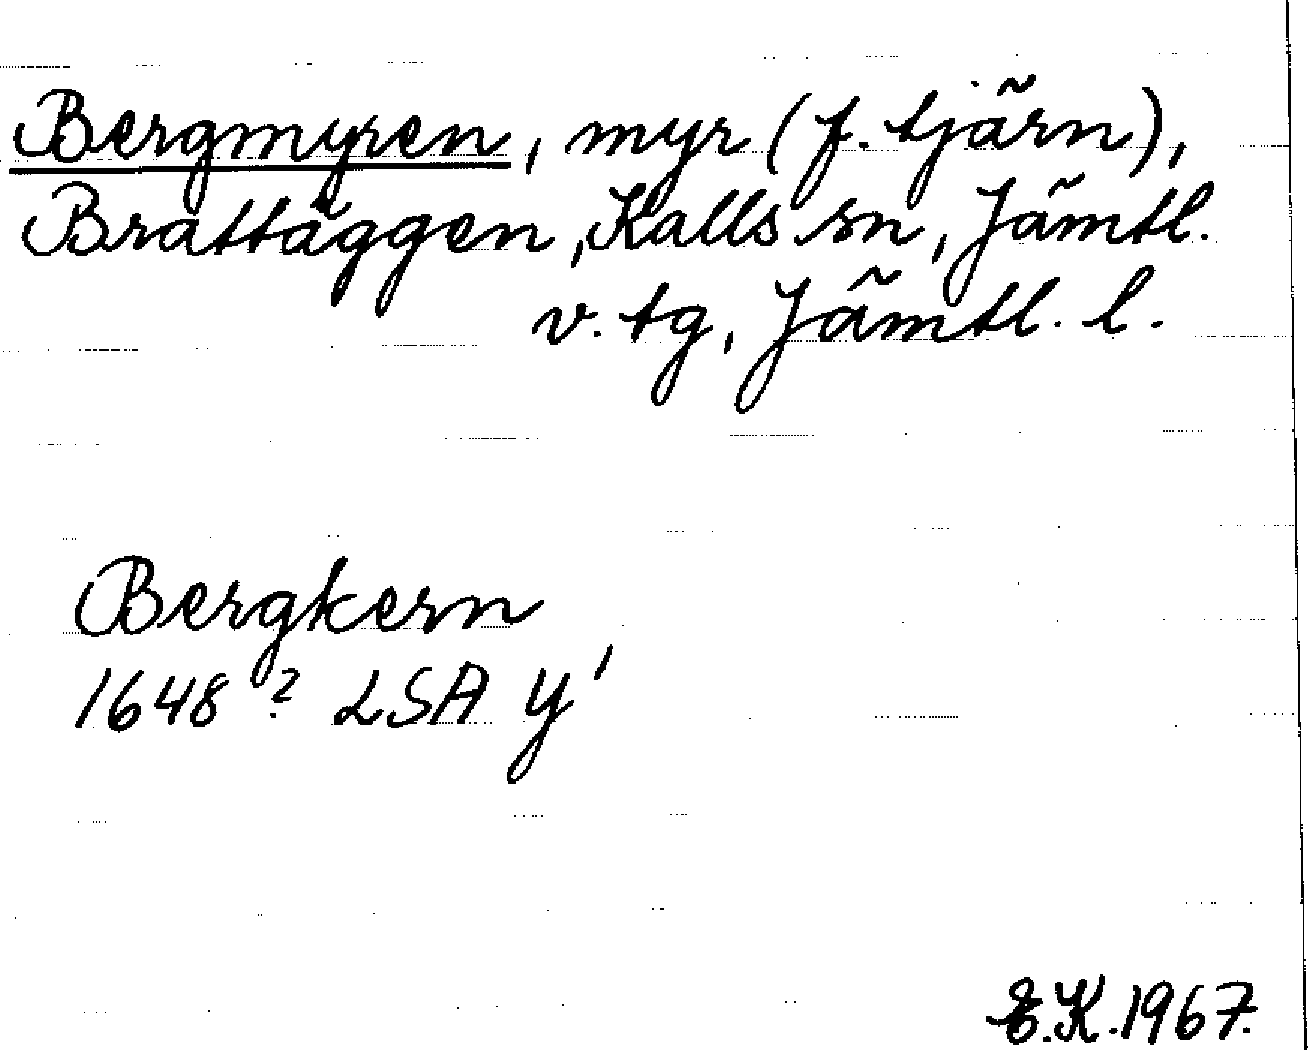 Bergmyren, myr (f. tjärn),
Brattäggen, Kalls sn, Jämtl.
v. tg, Jämtl. l.
Bergkern
1648? LSA y'
E.K. 1967.